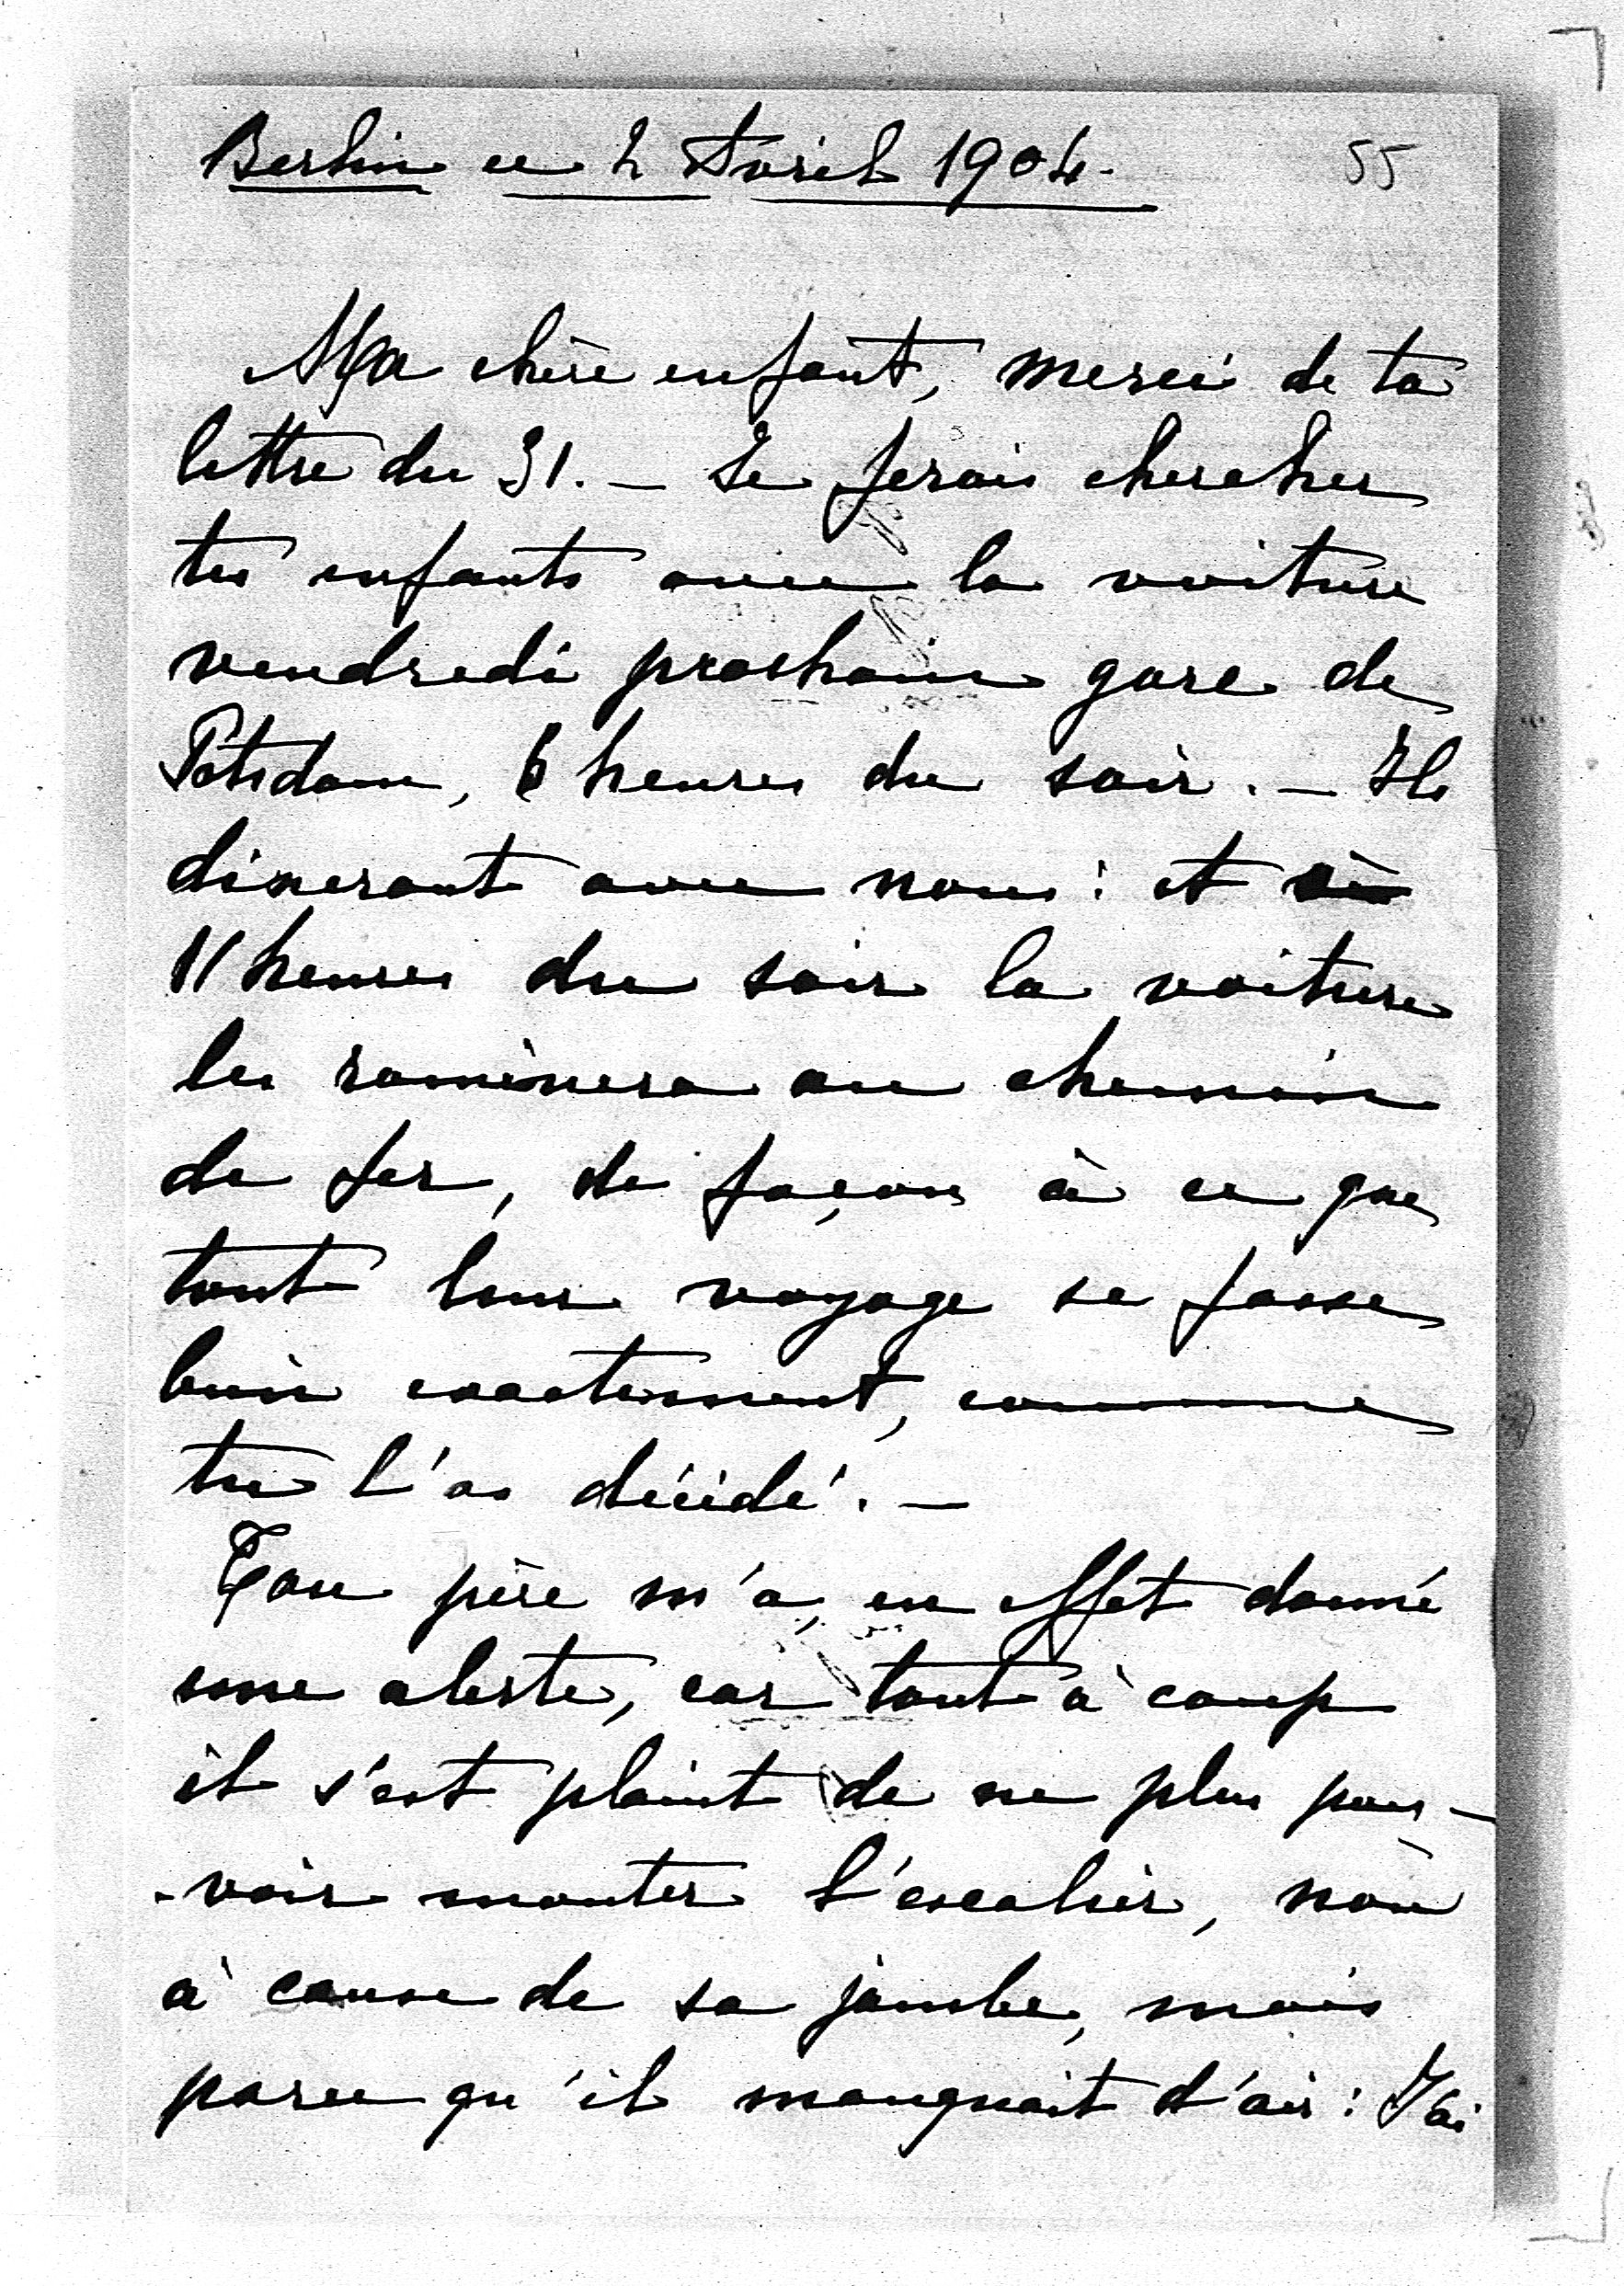 Berlin ce 2 Avril 1904.
55
Ma chère enfant, merci de ta
lettre du 31. — Je ferais chercher
tes enfants avec la voiture
vendredi prochain gare de
Potsdam, 6 heures du soir. — Ils
dineront avec nous : et à
11 heures du soir la voiture
les ramènera au chemin
de fer, de façon à ce que
tout leur voyage se fasse
bien exactement, comme
tu l'as décidé. —
Ton père m'a, en effet donné
une alerte, car tout à coup
il s'est plaint de ne plus pou-
-voir monter l'escalier, non
à cause de sa jambe, mais
parce qu'il manquait d'air : J'ai